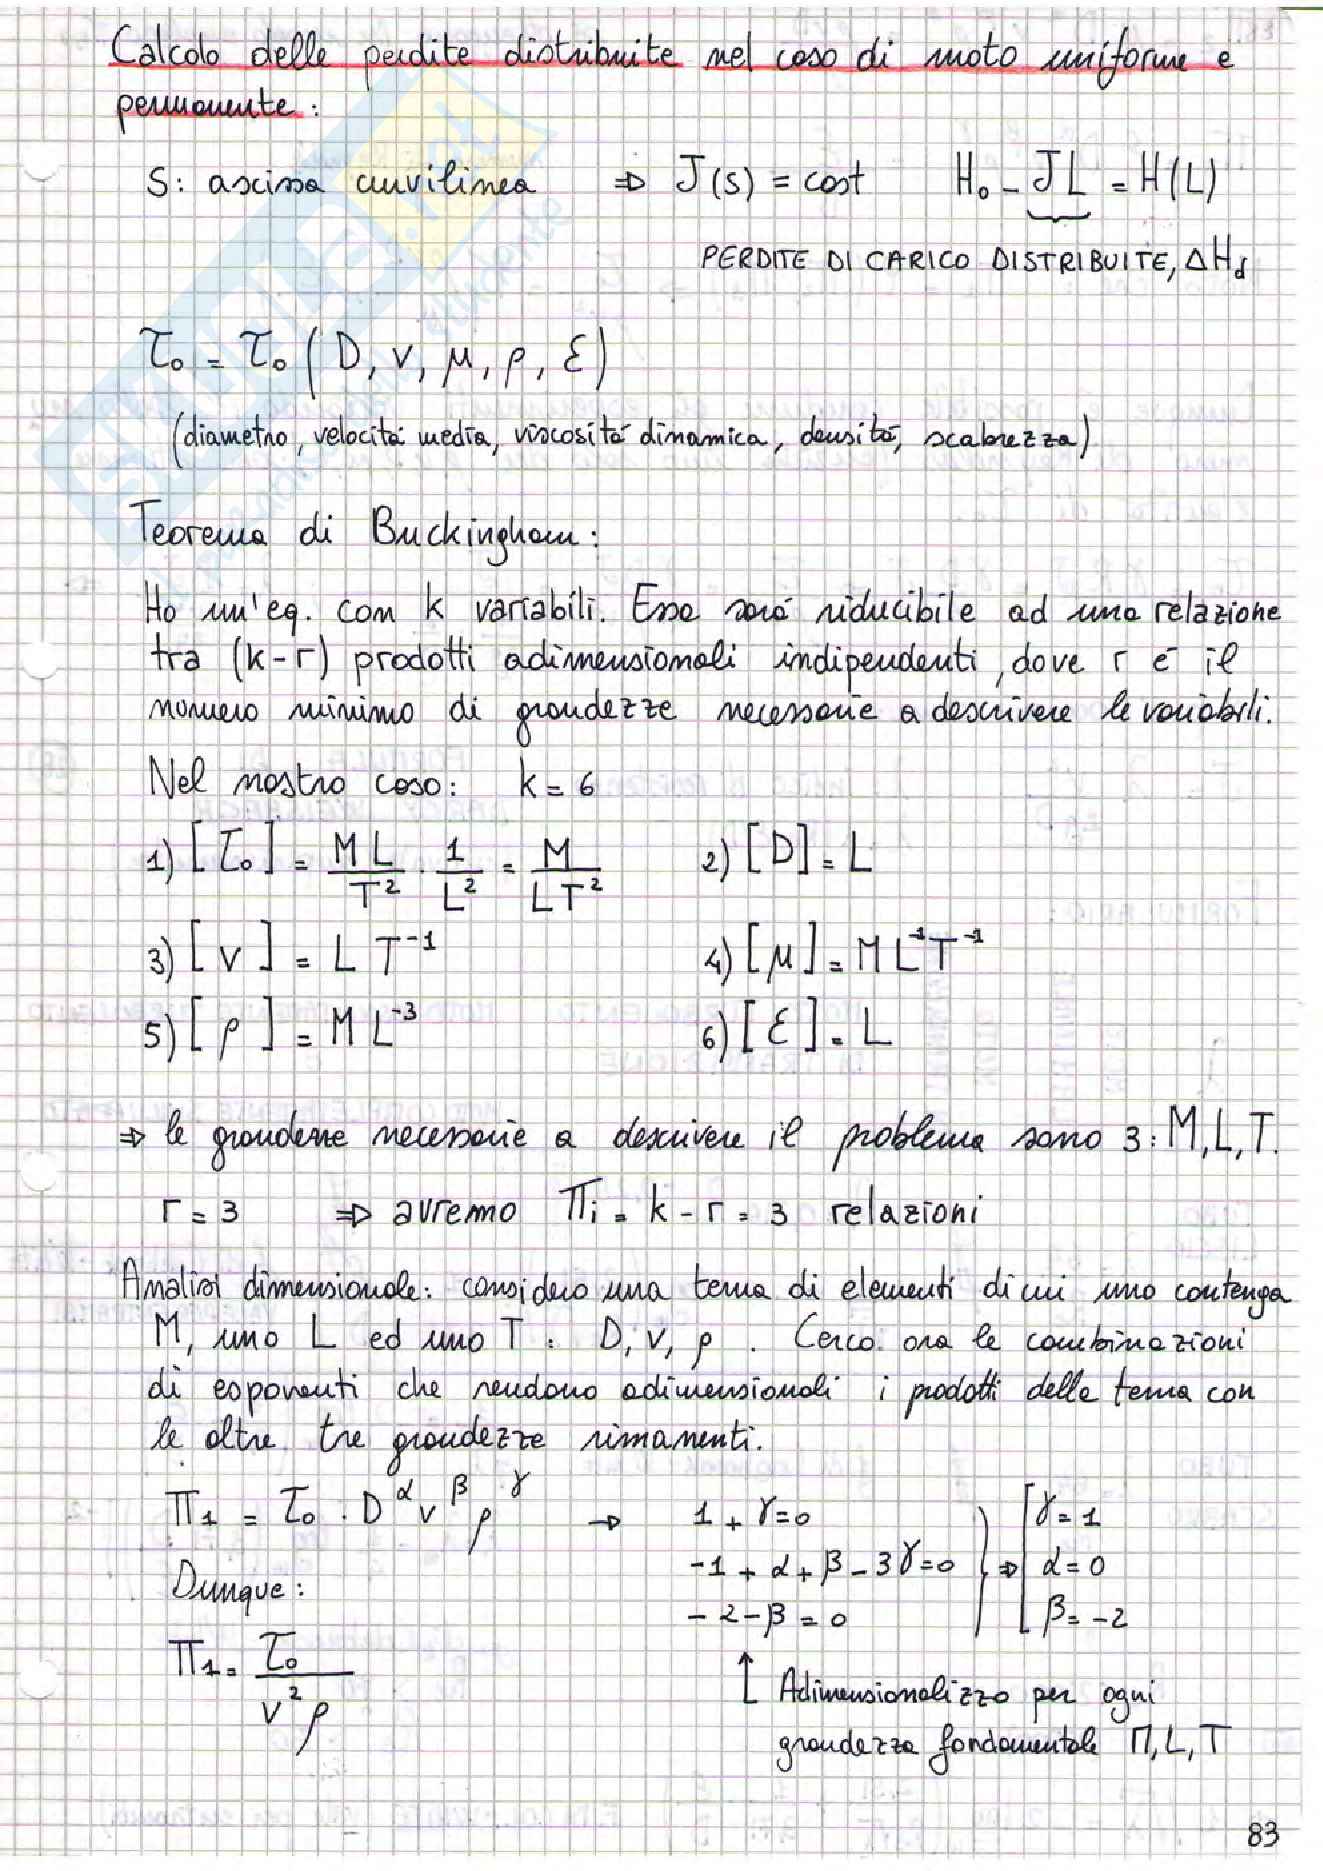 Calcolo delle perdite distribuite nel caso di moto uniforme e
permanente:
S: ascissa curvilinea ⇒ J(s) = cost H₀ - JL = H(L)
PERDITE DI CARICO DISTRIBUITE, ΔH_d
τ₀ = τ₀ (D, v, μ, ρ, ε)
(diametro, velocità media, viscosità dinamica, densità, scabrezza)
Teorema di Buckingham:
Ho un'eq. con k variabili. Essa sarà riducibile ad una relazione
tra (k-r) prodotti adimensionali indipendenti, dove r è il
numero minimo di grandezze necessarie a descrivere le variabili.
Nel nostro caso: k = 6
1) [τ₀] = ML/T² · 1/L² = M/LT² 2) [D] = L
3) [v] = L T⁻¹ 4) [μ] = M L⁻¹ T⁻¹
5) [ρ] = M L⁻³ 6) [ε] = L
⇒ le grandezze necessarie a descrivere il problema sono 3: M, L, T.
r = 3 ⇒ avremo Πi = k - r = 3 relazioni
Analisi dimensionale: considero una terna di elementi di cui uno contenga
M, uno L ed uno T: D, v, ρ. Cerco ora le combinazioni
di esponenti che rendono adimensionali i prodotti della terna con
le altre tre grandezze rimanenti.
Π1 = τ₀ · D^α v^β ρ^γ → 1 + γ = 0 γ = 1
-1 + α + β - 3γ = 0 ⇒ α = 0
Dunque:
-2 - β = 0 β = -2
Π1 = τ₀ / v² ρ
↑ Adimensionalizzo per ogni
grandezza fondamentale M, L, T
83